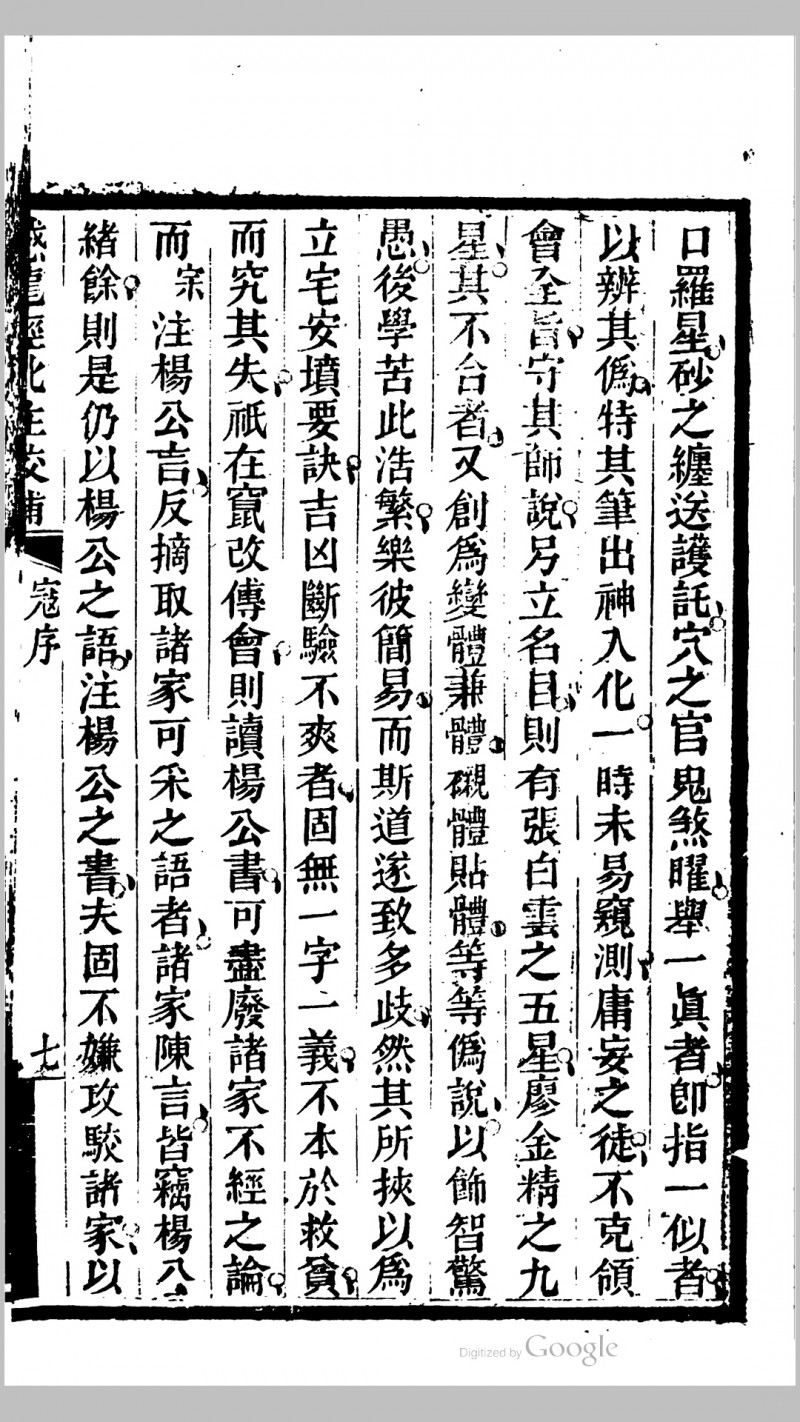 口羅星砂之纏送護託穴之官鬼煞曜舉一眞者卽指一似者
以辨其僞特其筆出神入化一時未易窺測庸妄之徒不克領
會全旨守其師說另立名目則有張白雲之五星廖金精之九
星其不合者又創爲變體兼體襯體貼體等等僞說以飾智驚
愚後學苦此浩繁樂彼簡易而斯道遂致多歧然其所挾以爲
立宅安墳要訣吉凶斷驗不爽者固無一字一義不本於救貧
而究其失祇在竄改傅會則讀楊公書可盡廢諸家不經之論
而宗注楊公言反摘取諸家可采之語者諸家陳言皆竊楊公
緒餘則是仍以楊公之語注楊公之書夫固不嫌攻駮諸家以
龍經
校補
寇序
七
Digitized by Google